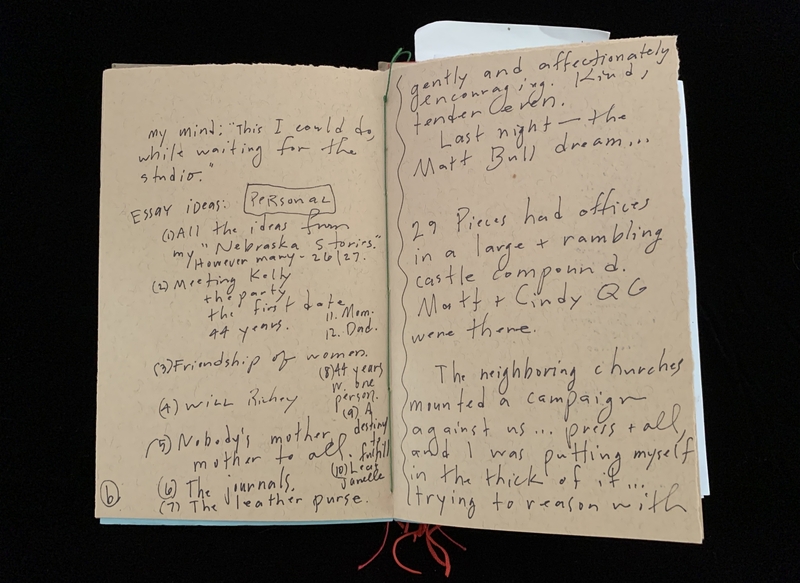 my mind: "This I could do,
while waiting for the
studio."
Essay ideas: PERSONAL
(1) All the ideas from
my "Nebraska Stories."
However many - 26/27.
(2) Meeting Kelly
the party
the first date
44 years.
11. Mom.
12. Dad.
(3) Friendship of women.
(8) 44 years
w. one
person.
(4) Will Richey
(9) A
destiny
to
fulfill
(5) Nobody's mother,
mother to all.
(10) Leaf
Janelle
(6) The journals.
(7) The leather purse.
6
gently and affectionately
encouraging. Kind,
tender even.
Last night — the
Matt Bull dream...
29 Pieces had offices
in a large + rambling
castle compound.
Matt + Cindy QG
were there.
The neighboring churches
mounted a campaign
against us... press + all,
and I was putting myself
in the thick of it...
trying to reason with